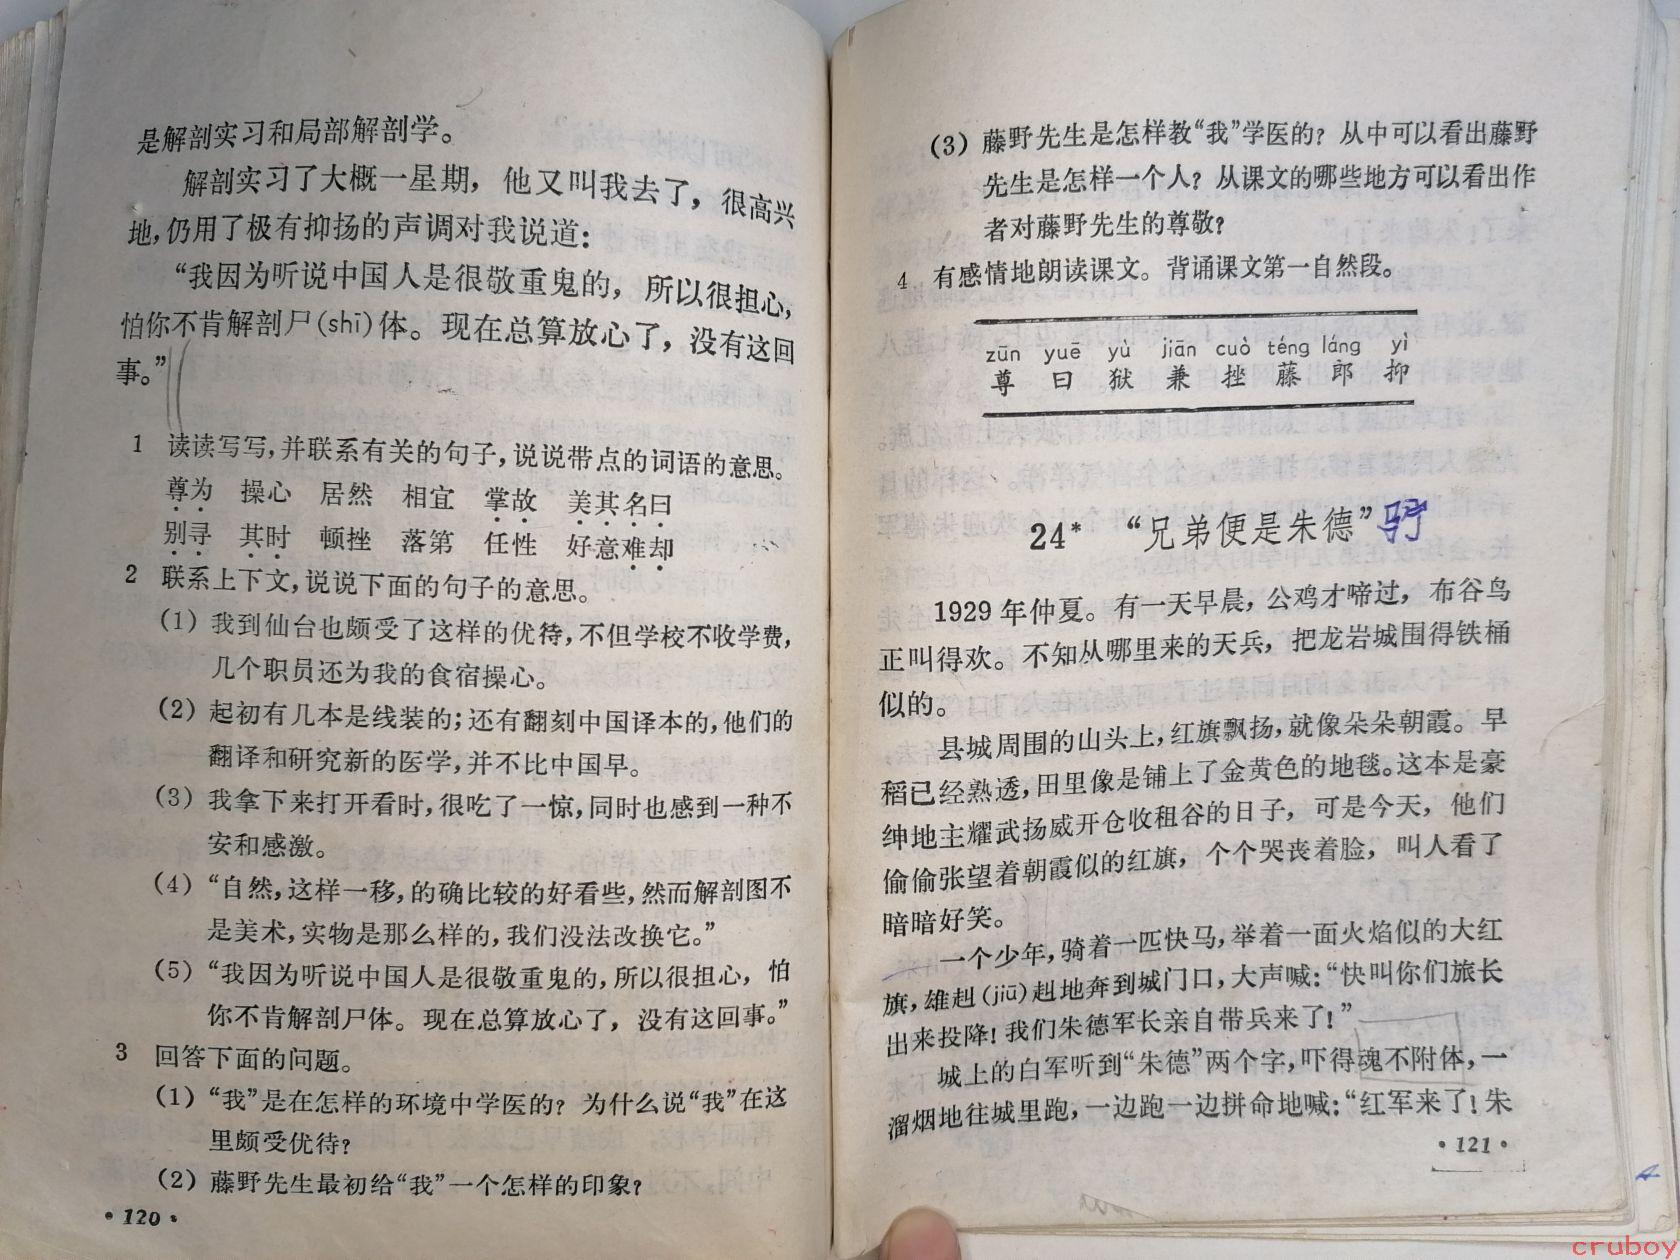 是解剖实习和局部解剖学。
解剖实习了大概一星期，他又叫我去了，很高兴
地，仍用了极有抑扬的声调对我说道：
“我因为听说中国人是很敬重鬼的，所以很担心，
怕你不肯解剖尸(shī)体。现在总算放心了，没有这回
事。”
1 读读写写，并联系有关的句子，说说带点的词语的意思。
尊为 操心 居然 相宜 掌故 美其名曰
别寻 其时 顿挫 落第 任性 好意难却
2 联系上下文，说说下面的句子的意思。
(1) 我到仙台也颇受了这样的优待，不但学校不收学费，
几个职员还为我的食宿操心。
(2) 起初有几本是线装的；还有翻刻中国译本的，他们的
翻译和研究新的医学，并不比中国早。
(3) 我拿下来打开看时，很吃了一惊，同时也感到一种不
安和感激。
(4) “自然，这样一移，的确比较的好看些，然而解剖图不
是美术，实物是那么样的，我们没法改换它。”
(5) “我因为听说中国人是很敬重鬼的，所以很担心，怕
你不肯解剖尸体。现在总算放心了，没有这回事。”
3 回答下面的问题。
(1) “我”是在怎样的环境中学医的？为什么说“我”在这
里颇受优待？
(2) 藤野先生最初给“我”一个怎样的印象？
·120·
(3) 藤野先生是怎样教“我”学医的？从中可以看出藤野
先生是怎样一个人？从课文的哪些地方可以看出作
者对藤野先生的尊敬？
4 有感情地朗读课文。背诵课文第一自然段。
zūn yuē yù jiān cuò téng láng yì
尊 曰 狱 兼 挫 藤 郎 抑
24* “兄弟便是朱德”
1929年仲夏。有一天早晨，公鸡才啼过，布谷鸟
正叫得欢。不知从哪里来的天兵，把龙岩城围得铁桶
似的。
县城周围的山头上，红旗飘扬，就像朵朵朝霞。早
稻已经熟透，田里像是铺上了金黄色的地毯。这本是豪
绅地主耀武扬威开仓收租谷的日子，可是今天，他们
偷偷张望着朝霞似的红旗，个个哭丧着脸，叫人看了
暗暗好笑。
一个少年，骑着一匹快马，举着一面火焰似的大红
旗，雄赳(jiū)赳地奔到城门口，大声喊：“快叫你们旅长
出来投降！我们朱德军长亲自带兵来了！”
城上的白军听到“朱德”两个字，吓得魂不附体，一
溜烟地往城里跑，一边跑一边拼命地喊：“红军来了！朱
·121·
cruboy